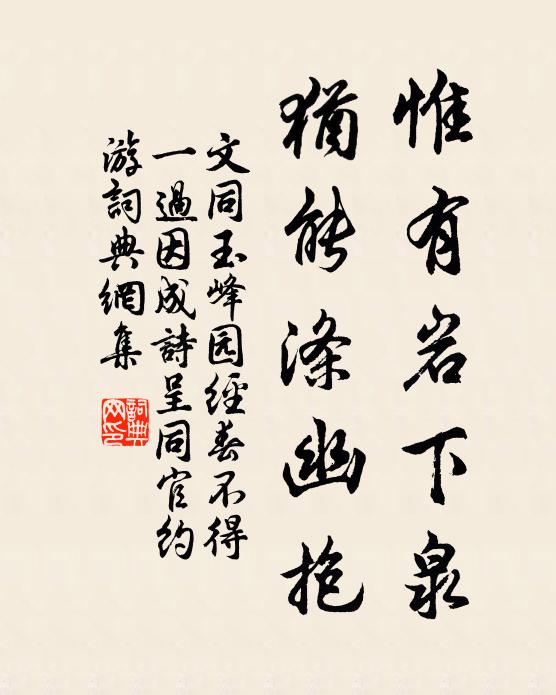 惟有岩下泉
猶能滌幽抱
文同玉峰园經春不得
一過因成詩呈同官约
游詞典網集
詞典网印